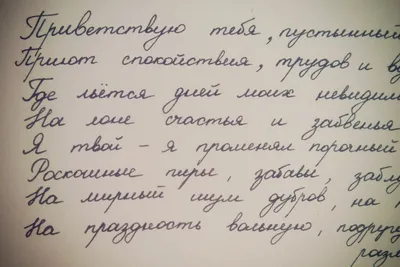 Приветствую тебя, пустынный
Приют спокойствия, трудов и в
Где льётся дней моих невидим
На лоне счастья и забвенья
Я твой – я променял порочный
Роскошные пиры, забавы, заблу
На мирный шум дубров, на
На праздность вольную, подруг
разм